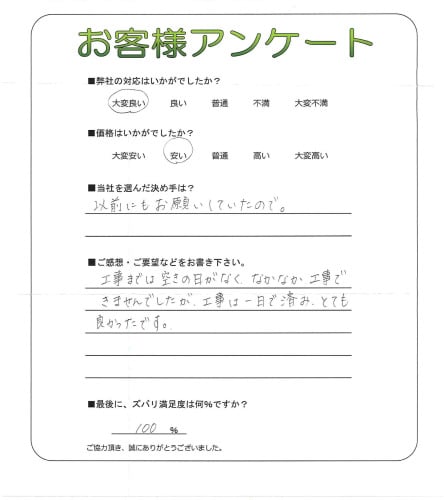 お客様アンケート
■弊社の対応はいかがでしたか?
大変良い 良い 普通 不満 大変不満
■価格はいかがでしたか?
大変安い 安い 普通 高い 大変高い
■当社を選んだ決め手は?
以前にもお願いしていたので。
■ご感想・ご要望などをお書き下さい。
工事までは空きの日がなく、なかなか工事で
きませんでしたが、工事は一日で済み、とても
良かったです。
■最後に、ズバリ満足度は何%ですか?
100 %
ご協力頂き、誠にありがとうございました。